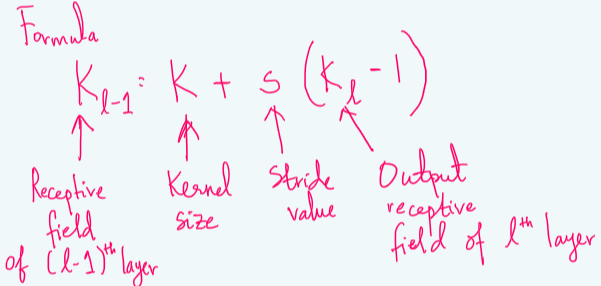 Formula
K_{l-1} : K + s (K_l - 1)
Receptive field of (l-1)^{th} layer
Kernel size
Stride value
Output receptive field of l^{th} layer